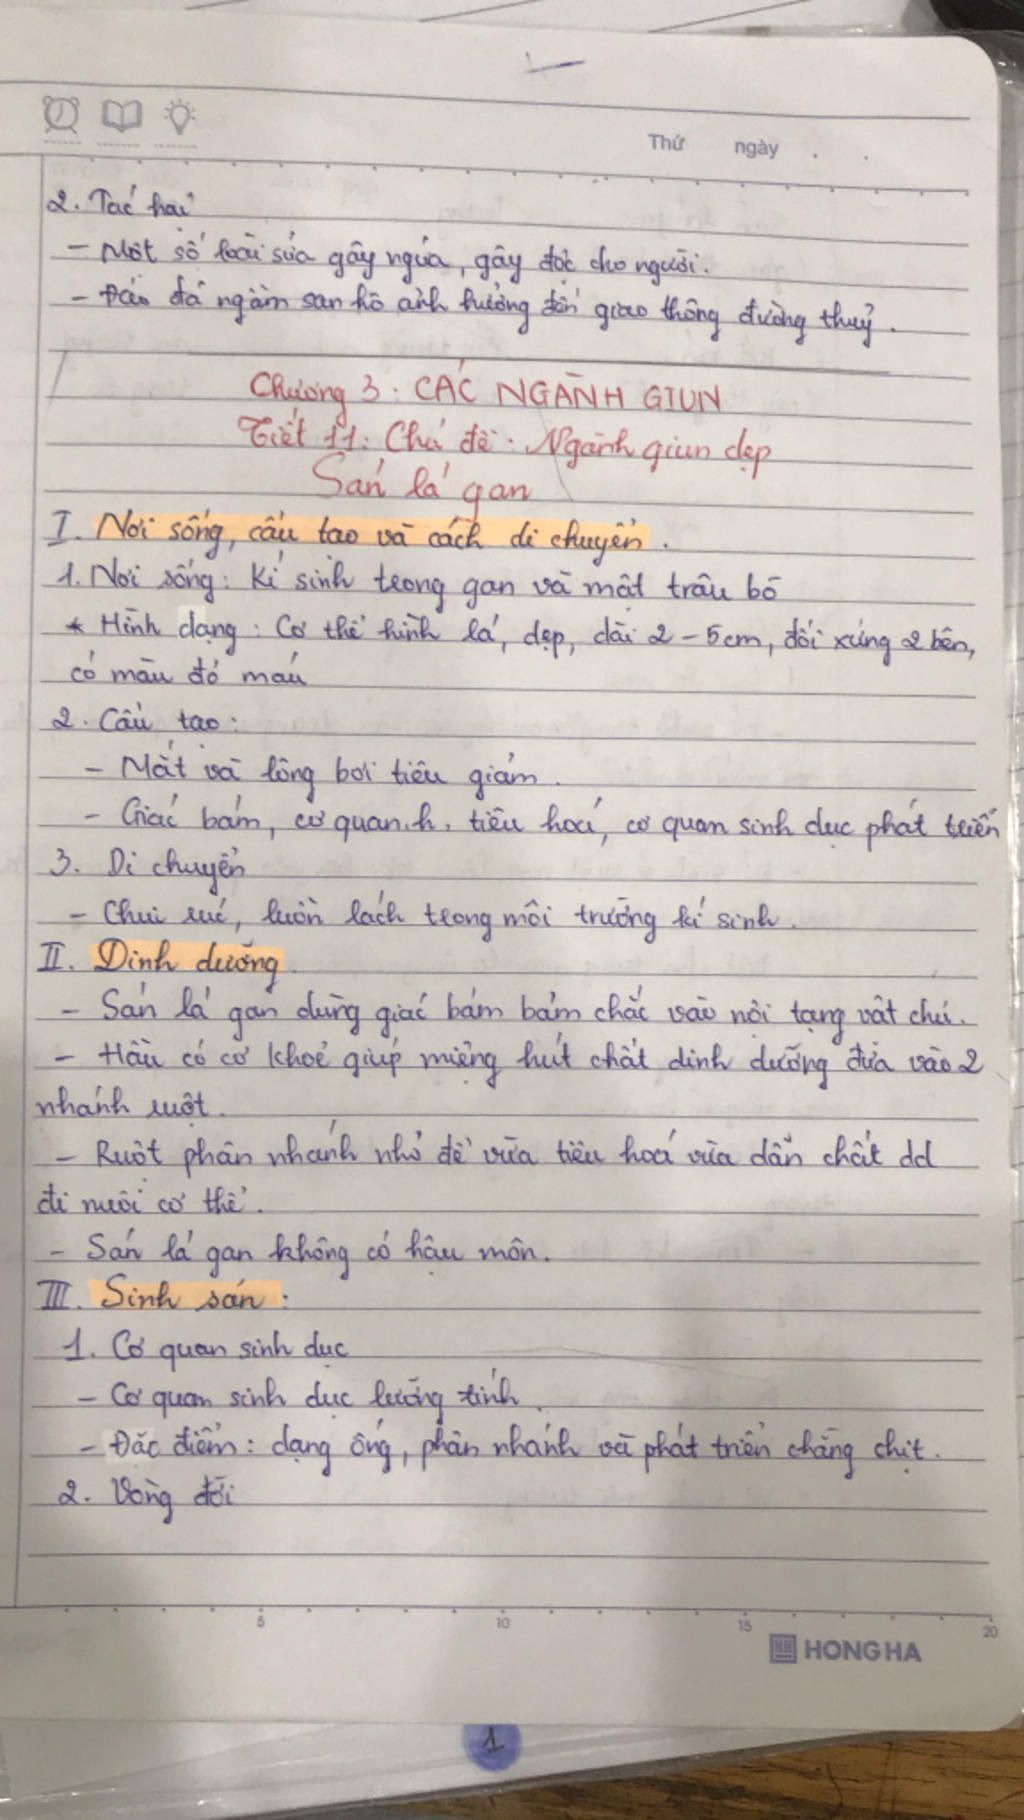 Thứ ngày
2. Tác hại
- Một số loài sứa gây ngứa, gây độc cho người.
- Đảo đá ngầm san hô ảnh hưởng đến giao thông đường thuỷ.
Chương 3: CÁC NGÀNH GIUN
Tiết 11: Chủ đề: Ngành giun dẹp
Sán lá gan
I. Nơi sống, cấu tạo và cách di chuyển.
1. Nơi sống: Kí sinh trong gan và mật trâu bò
* Hình dạng: Cơ thể hình lá, dẹp, dài 2-5cm, đối xứng 2 bên,
có màu đỏ máu
2. Cấu tạo:
- Mắt và lông bơi tiêu giảm.
- Giác bám, cơ quan.h. tiêu hoá, cơ quan sinh dục phát triển
3. Di chuyển
- Chui rúc, luồn lách trong môi trường kí sinh.
II. Dinh dưỡng.
- Sán lá gan dùng giác bám bám chắc vào nội tạng vật chủ.
- Hầu có cơ khoẻ giúp miệng hút chất dinh dưỡng đưa vào 2
nhánh ruột.
- Ruột phân nhánh nhỏ để vừa tiêu hoá vừa dẫn chất dd
đi nuôi cơ thể.
- Sán lá gan không có hậu môn.
III. Sinh sản:
1. Cơ quan sinh dục
- Cơ quan sinh dục lưỡng tính.
- Đặc điểm: dạng ống, phân nhánh và phát triển chằng chịt.
2. Vòng đời
5 10 15 20
HONG HA
1